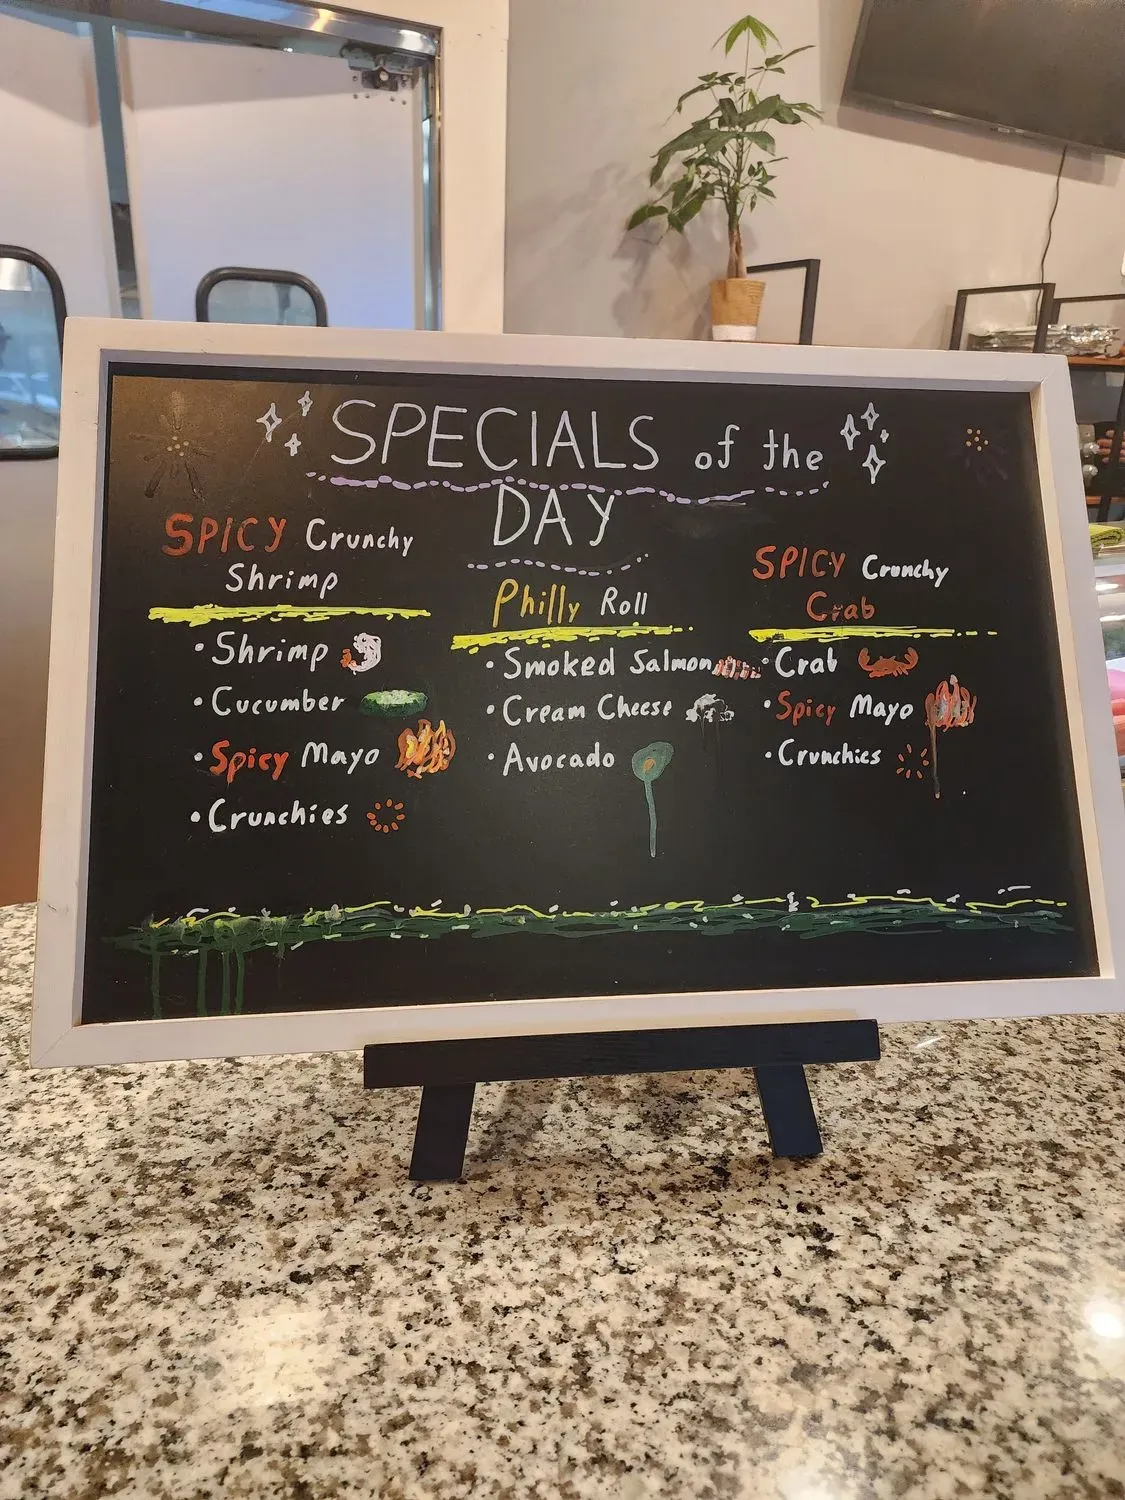 SPECIALS of the
DAY
SPICY Crunchy
Shrimp
• Shrimp
• Cucumber
• Spicy Mayo
• Crunchies
Philly Roll
• Smoked Salmon
• Cream Cheese
• Avocado
SPICY Crunchy
Crab
• Crab
• Spicy Mayo
• Crunchies